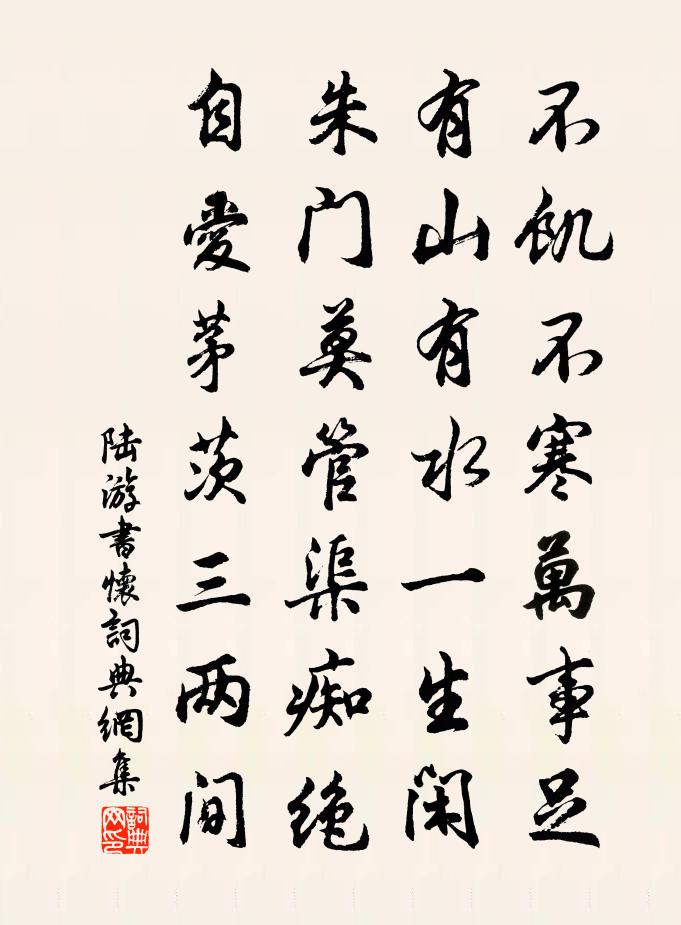 不飢不寒萬事足
有山有水一生閑
朱门莫管渠痴绝
自愛茅茨三两间
陆游書懷詞典網集
詞典网印